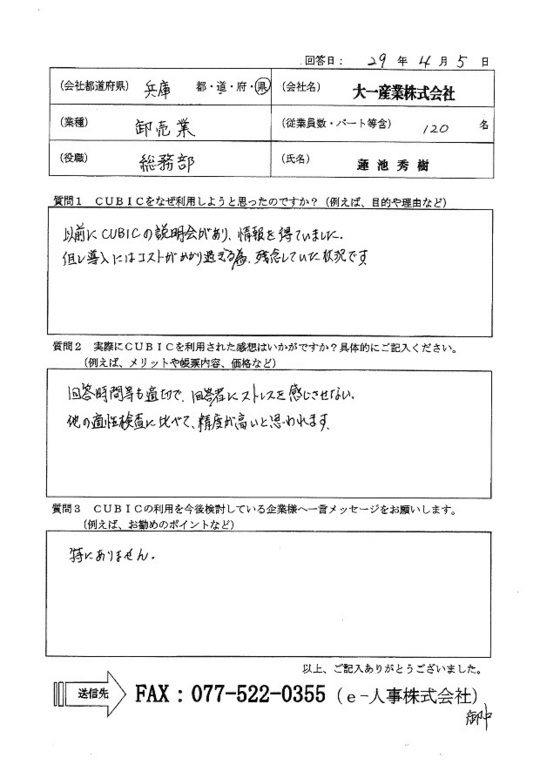 回答日： 29 年 4 月 5 日
（会社都道府県） 兵庫 都・道・府・県 （会社名） 大一産業株式会社
（業種） 卸売業 （従業員数・パート等含） 120 名
（役職） 総務部 （氏名） 蓮池秀樹
質問１　ＣＵＢＩＣをなぜ利用しようと思ったのですか？（例えば、目的や理由など）
以前にCUBICの説明会があり、情報を得ていました。
但し導入にはコストがかかり過ぎる為、残念していた状況です
質問２　実際にＣＵＢＩＣを利用された感想はいかがですか？具体的にご記入ください。
（例えば、メリットや帳票内容、価格など）
回答時間等も適切で、回答者にストレスを感じさせない。
他の適性検査に比べて、精度が高いと思われます。
質問３　ＣＵＢＩＣの利用を今後検討している企業様へ一言メッセージをお願いします。
（例えば、お勧めのポイントなど）
特にありません。
以上、ご記入ありがとうございました。
送信先 FAX：077-522-0355（ｅ−人事株式会社）
御中